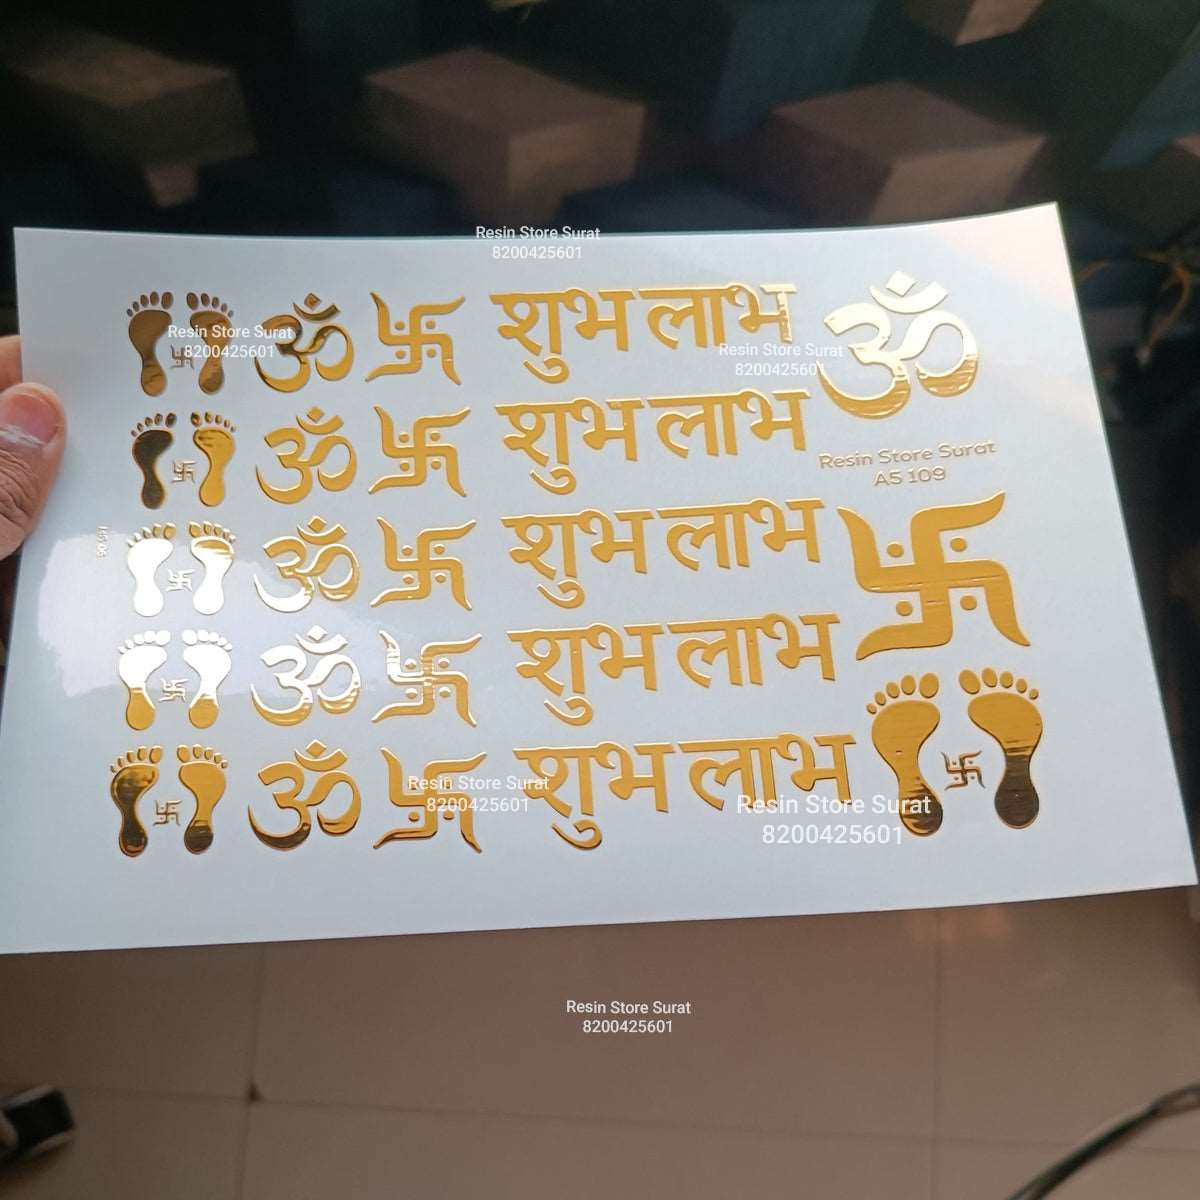 Resin Store Surat
8200425601
Resin Store Surat
8200425601
ॐ
शुभ लाभ
Resin Store Surat
8200425601
ॐ
ॐ
शुभ लाभ
Resin Store Surat
A5 109
ॐ
शुभ लाभ
ॐ
शुभ लाभ
ॐ
शुभ लाभ
Resin Store Surat
8200425601
Resin Store Surat
8200425601
Resin Store Surat
8200425601